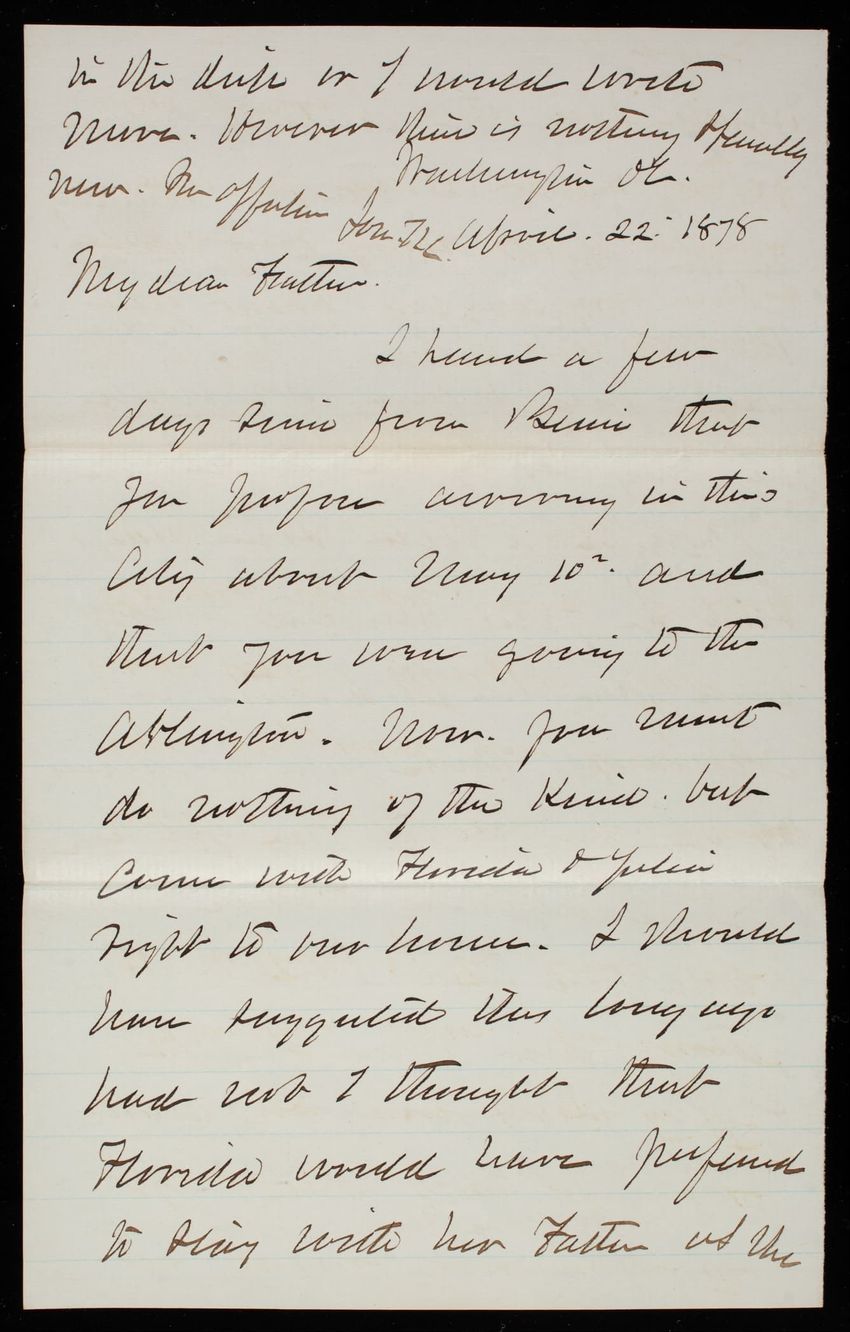 in the desk or I would write
more. However there is nothing
new. Yr affection
Washington DC.
Son TLC. April. 22. 1878
My dear Father.
I heard a few
days since from Bernie that
you propose arriving in this
City about May 10th. and
that you were going to the
Arlington. Now. you must
do nothing of the Kind. but
come with Florida & Julia
right to our house. I should
have suggested this long ago
had not I thought that
Florida would have preferred
to stay with her Father as she